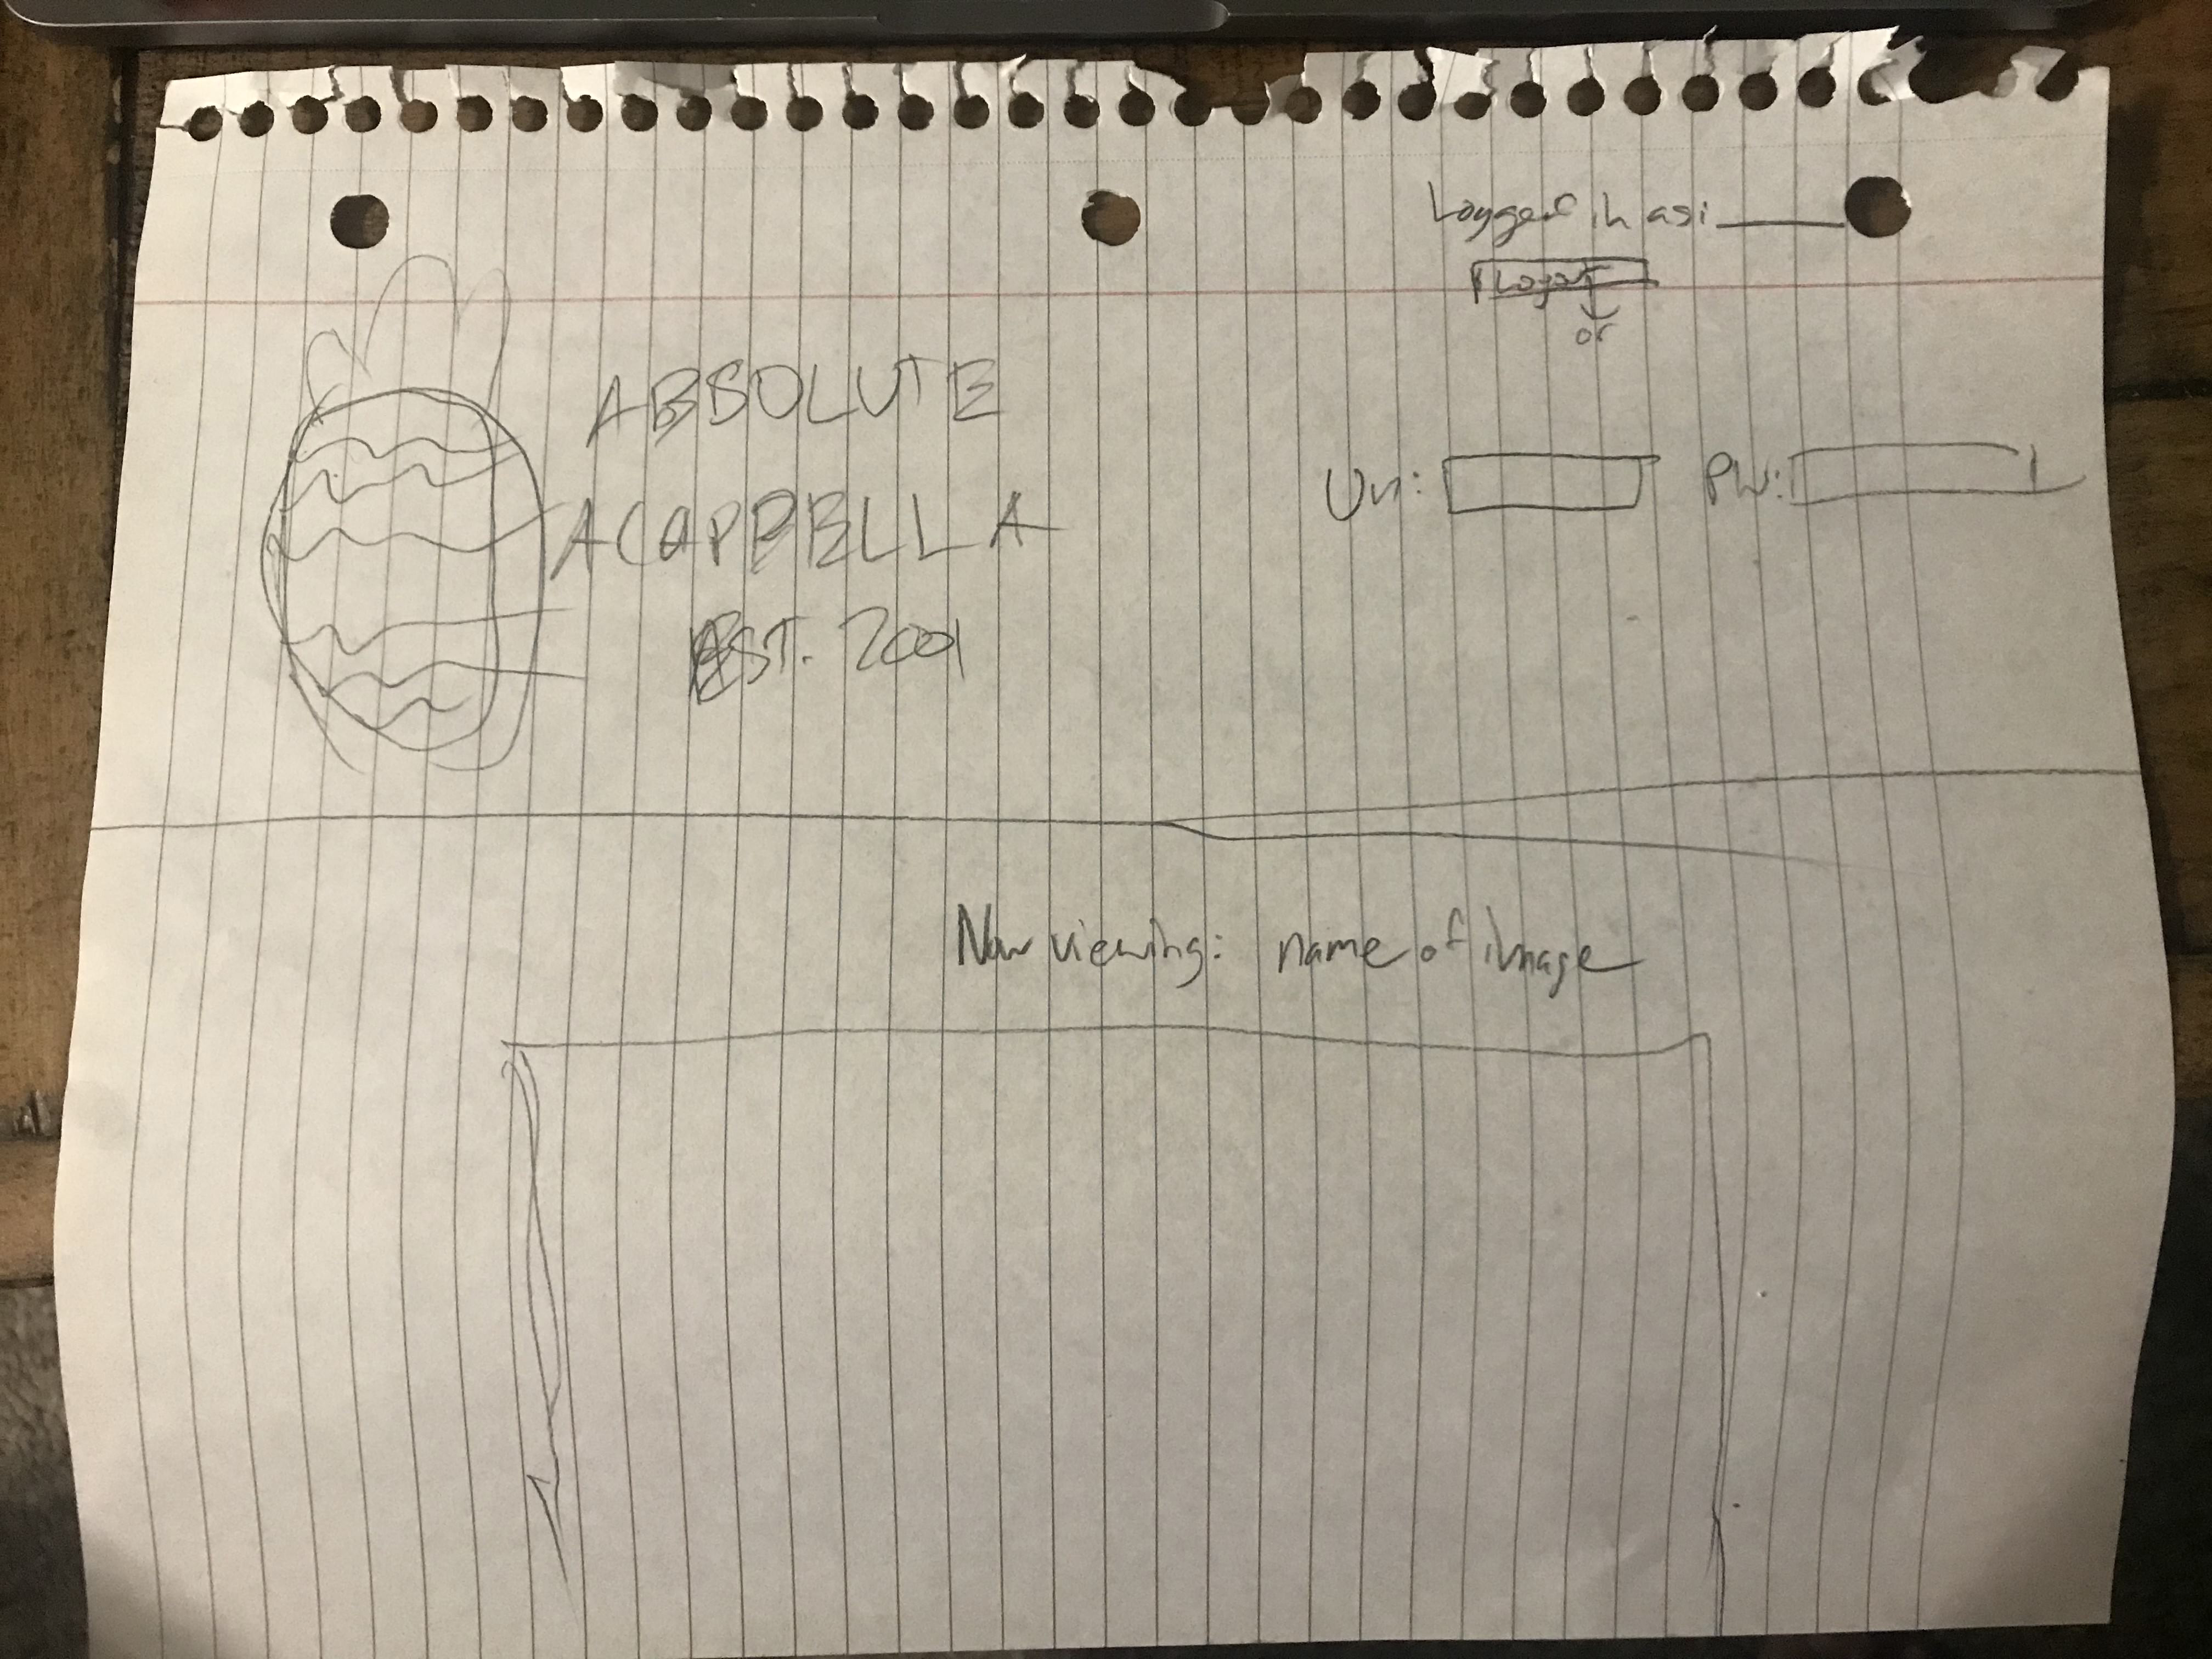 Logged in as: ______
Logout
or
ABSOLUTE
ACAPPELLA
EST. 2001
Un:
PW:
Now viewing: name of image